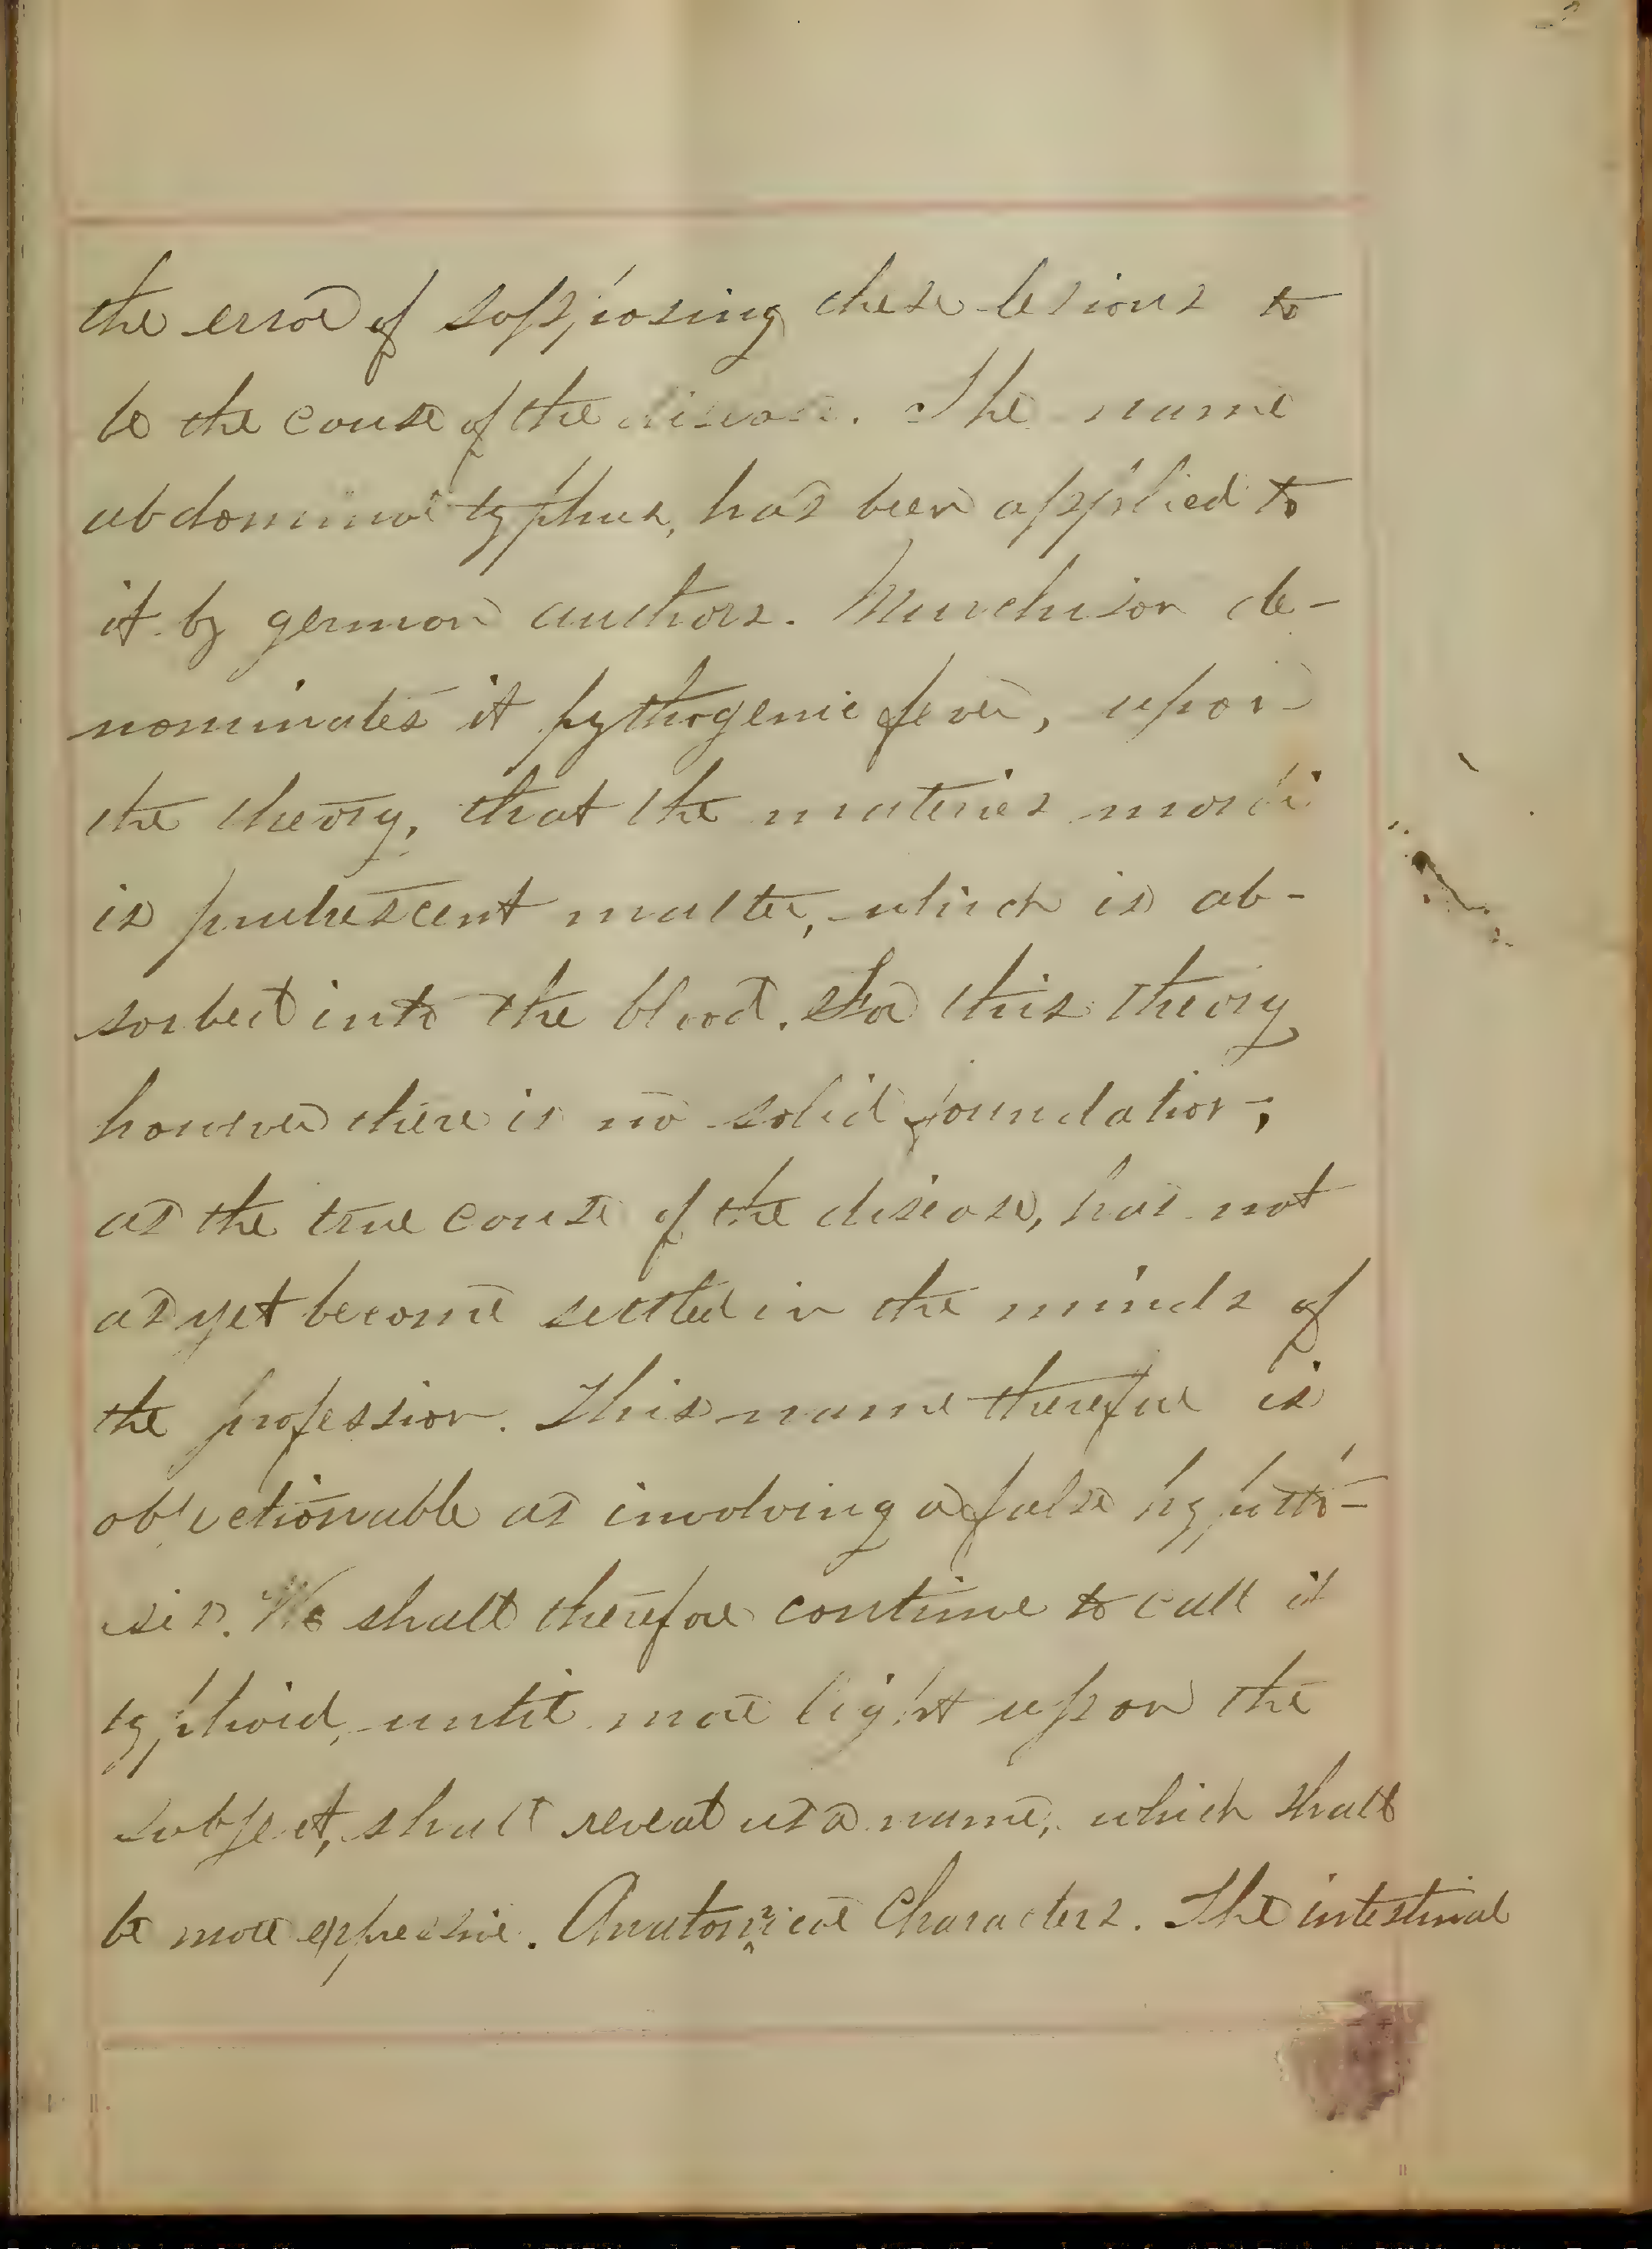 the error of sopposing these lesions to
be the couse of the disease. The name
abdominal typhus, has been applied to
it by german authors. Murchison de-
nominates it pythogenic fever, upon
the theory, that the materies morbi
is putrescent matter, which is ab-
sorbed into the blood. For this theory
however there is no solid foundation,
as the true couse of the disease, has not
as yet become settled in the minds of
the profession. This name therefore is
objectionable as involving a false hypothe-
sis. We shall therefore continue to call it
typhoid, until more light upon the
subject, shall reveal us a name, which shall
be more expressive. Anatomical Characters. The intestinal